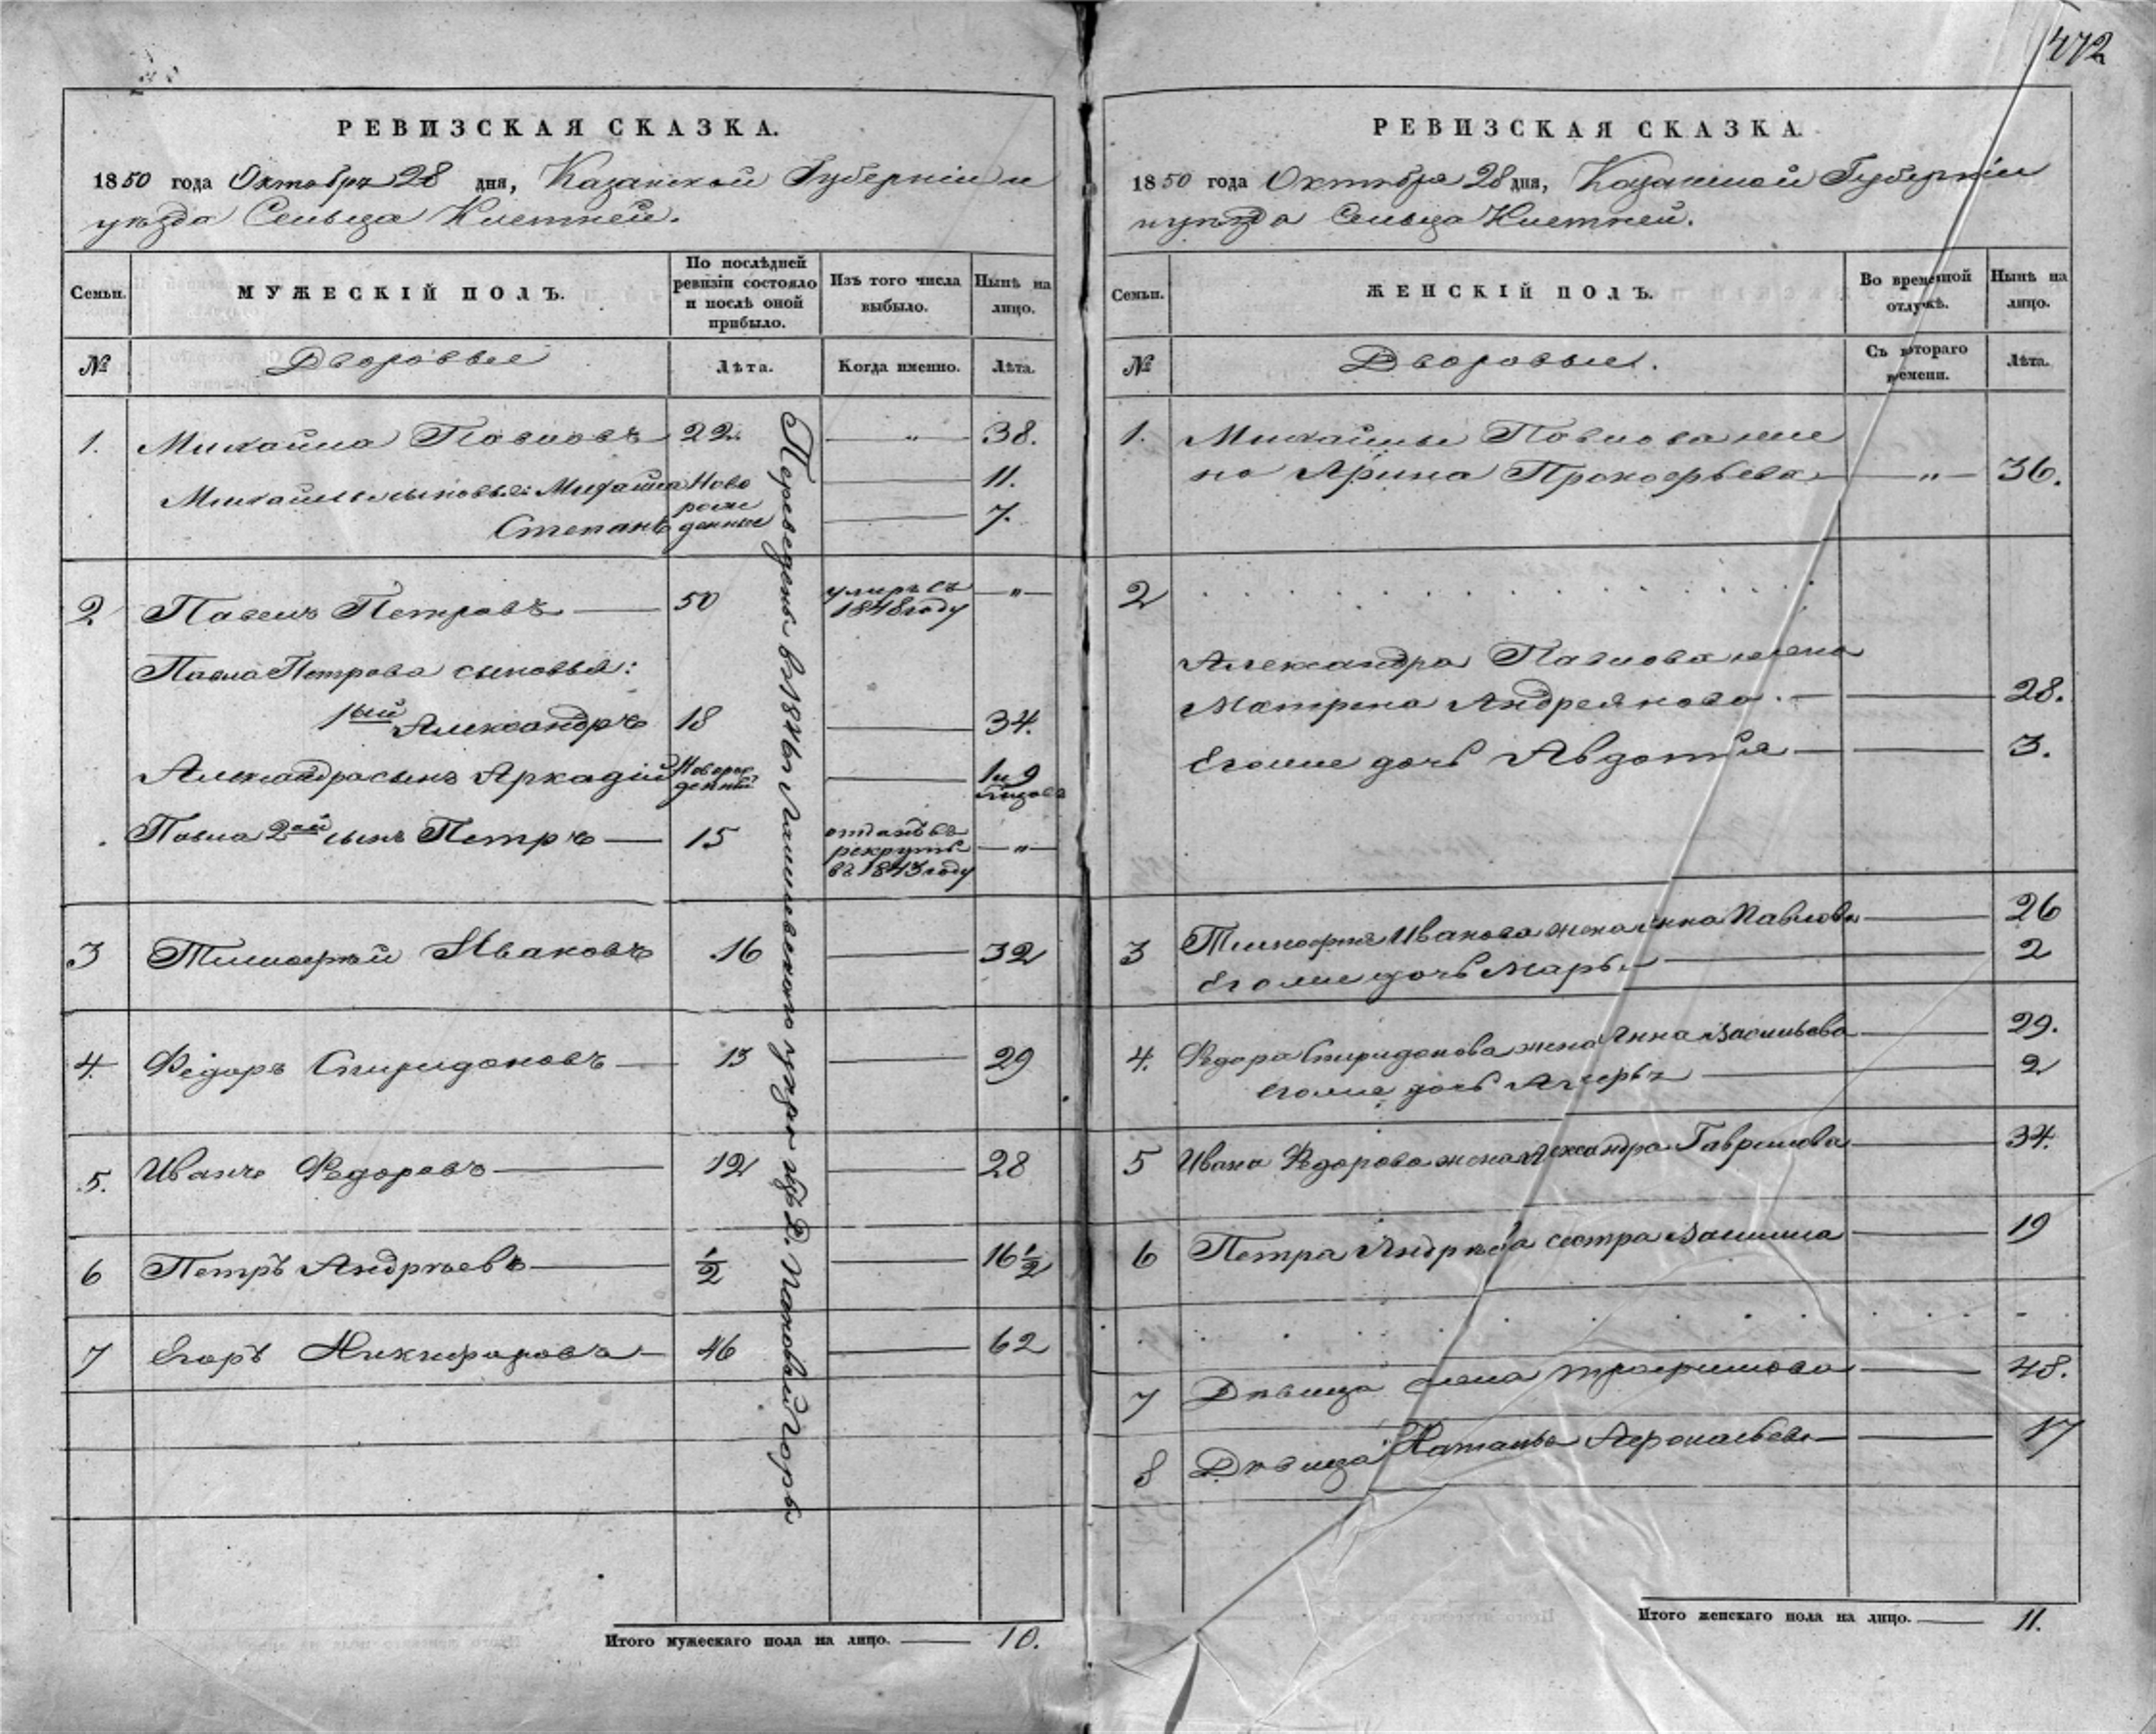 472
РЕВИЗСКАЯ СКАЗКА.
1850 года Октября 28 дня, Казанской Губерніи и
уѣзда Сельца Клетней.
Семьи.
МУЖЕСКІЙ ПОЛЪ.
По послѣдней
ревизіи состояло
и послѣ оной
прибыло.
Изъ того числа
выбыло.
Нынѣ на
лицо.
№
Дворовые
Лѣта.
Когда именно.
Лѣта.
1. Михайла Павловъ 22. — „ — 38.
Михайлы сыновья: Михайла Ново — 11.
рож
Степанъ денные — 7.
2. Павелъ Петровъ — 50 умеръ въ — „ —
1848 году
Павла Петрова сыновья:
1ый Александръ 18 — 34.
Александра сынъ Аркадій Новорож — 1 и 9
денный месяцовъ
Павла 2ой сынъ Петръ — 15 отданъ въ — „ —
рекруты
въ 1843 году
3 Тимофей Ивановъ 16 — 32
4. Федоръ Спиридоновъ — 13 — 29
5. Иванъ Федоровъ — 12 — 28
6 Петръ Андреевъ — 1/2 — 16 1/2
7 Егоръ Никифоровъ — 46 — 62
Переведены въ Лаишевскаго уѣзда изъ Д. Горы
Итого мужескаго пола на лицо. — 10.
РЕВИЗСКАЯ СКАЗКА.
1850 года Октября 28 дня, Казанской Губерніи
и уѣзда Сельца Клетней.
Семьи.
ЖЕНСКІЙ ПОЛЪ.
Во временной
отлучкѣ.
Нынѣ на
лицо.
№
Дворовые.
Съ котораго
времени.
Лѣта.
1. Михайлы Павлова же
на Арина Прокофьева — „ — 36.
2
Александра Павлова жена
Матрена Андреянова. — 28.
Его же дочь Авдотья — 3.
3 Тимофея Иванова жена Анна Павлова — 26
Его же дочь Марья — 2
4. Федора Спиридонова жена Анна Васильева — 29.
Его же дочь — 2
5 Ивана Федорова жена Александра Гаврилова — 34.
6 Петра Андреева сестра Василиса — 19
7 Дѣвица Елена Трофимова — 48.
8 Дѣвица Наталья Афонасьева — 17
Итого женскаго пола на лицо. — 11.